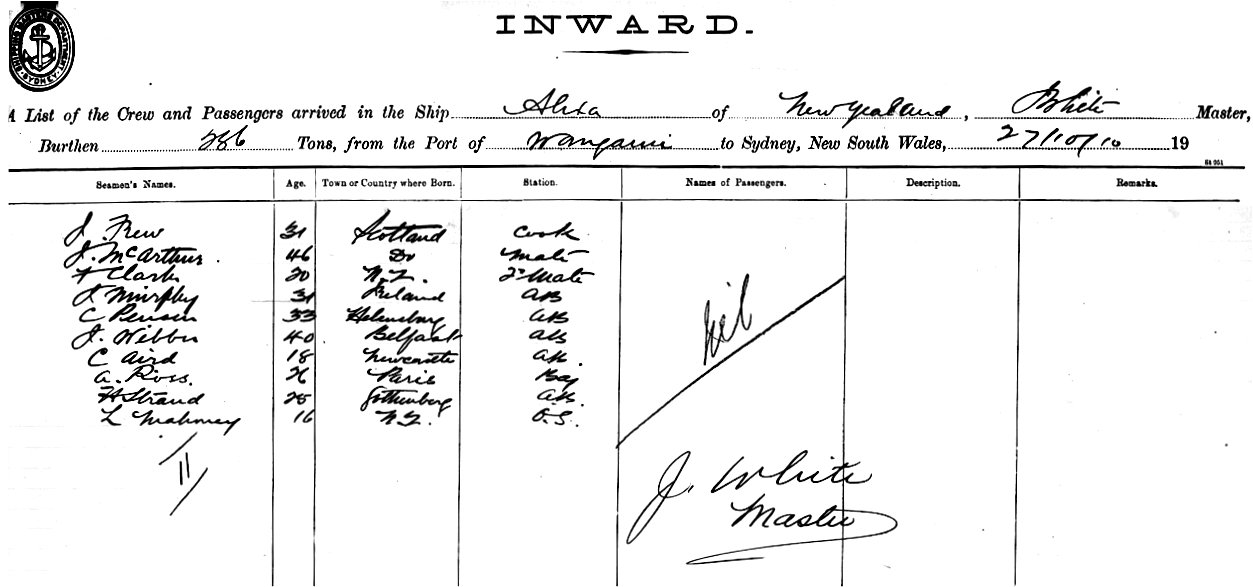 SHIPPING MASTERS DEPARTMENT SYDNEY
INWARD.
A List of the Crew and Passengers arrived in the Ship Alexa of New Zealand, J White Master,
Burthen 286 Tons, from the Port of Wanganui to Sydney, New South Wales, 27/10/10 19
Seamen's Names. Age. Town or Country where Born. Station. Names of Passengers. Description. Remarks.
J. Frew 31 Scotland Cook
J. McArthur. 46 Do Mate
F Clark 20 N.Z. 2d Mate
J Murphy 31 Ireland AB
C 33 AB
J. Webber 40 Belfast AB
C Aird 18 Newcastle AB.
A. Ross. 26 Paris
H Strand 25 Gothenberg A.B.
L Mahoney 16 N.Z. O.S.
Nil
11
J. White
Master